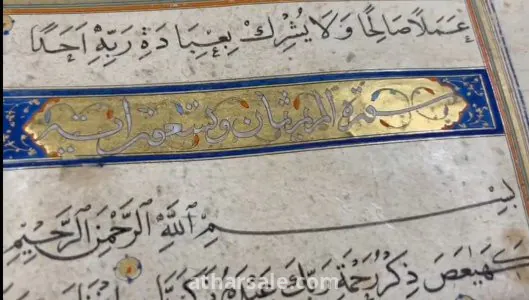 عَمَلًا صَالِحًا وَلَا يُشْرِكْ بِعِبَادَةِ رَبِّهِ أَحَدًا
سورة مريم ثمان وتسعون آية
بِسْمِ اللَّهِ الرَّحْمَنِ الرَّحِيمِ
كهيعص ذِكْرُ رَحْمَةِ رَبِّكَ عَبْدَهُ زَكَرِيَّا
atharsale.com